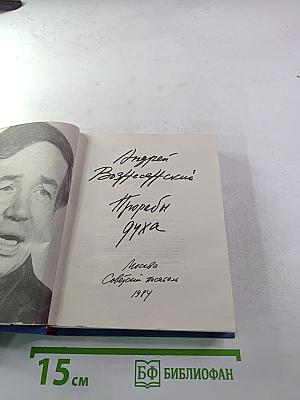 Андрей
Вознесенский
Прорабы
духа
Москва
Советский писатель
1984
15 см
БФ БИБЛИОФАН